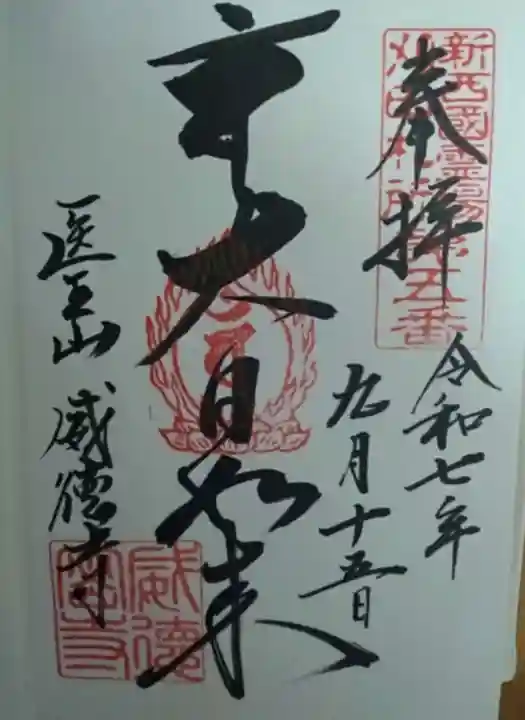 奉拝
新西國霊場
札所第五番
令和七年
九月十五日
大日如来
医王山 威德寺
威德